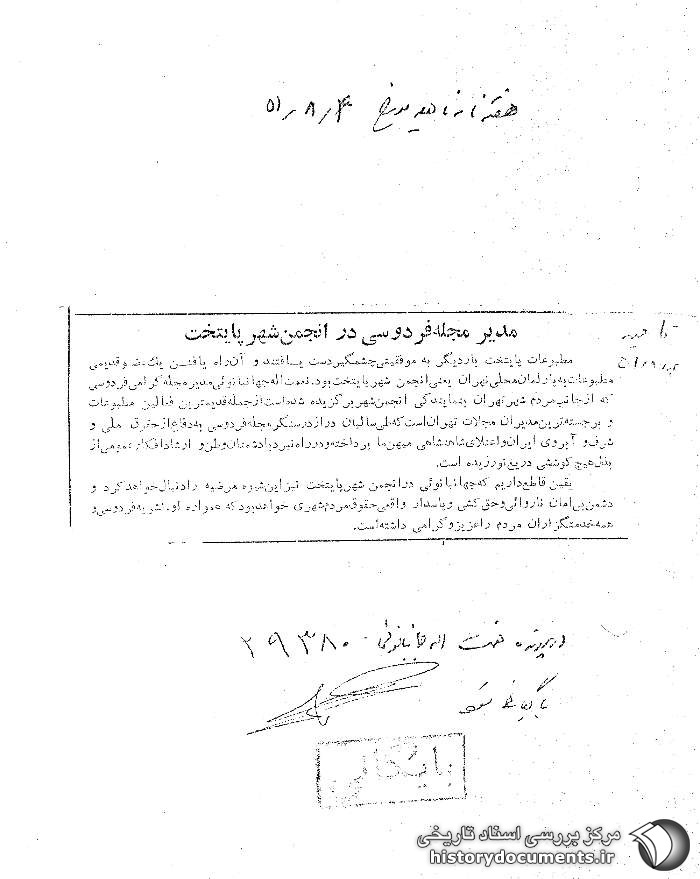 هفته نامه ناهید مورخ ۵۱/۸/۴
مدیر مجله فردوسی در انجمن شهر پایتخت
مطبوعات پایتخت باردیگر به موفقیتی چشمگیر دست یافتند و آن راه یافتن یک عضو قدیمی
مطبوعات به پارلمان محلی تهران یعنی انجمن شهر پایتخت بود. نعمت اله جهانبانوئی مدیر مجله گرامی فردوسی
که از جانب مردم شهر تهران بنمایندگی انجمن شهر برگزیده شده است از جمله قدیمترین فعالین مطبوعات
و برجسته ترین مدیران مجلات تهران است که طی سالیان دراز در سنگر مجله فردوسی به دفاع از حقوق ملی و
شرف و آبروی ایران و اعتلای شاهنشاهی میهن ما پرداخته و در راه نبرد با دشمنان وطن و ارشاد افکار عمومی از
بذل هیچ کوششی دریغ نورزیده است.
یقین قاطع داریم که جهانبانوئی در انجمن شهر پایتخت نیز این شیوه مرضیه را دنبال خواهد کرد و
دشمن بی امان ناروائی و حق کشی و پاسدار واقعی حقوق مردم شهری خواهد بود که همواره او، نشریه فردوسی و
همه خدمتگزاران مردم را عزیز و گرامی داشته است.
در پرونده نعمت اله جهانبانوئی ۲۹۳۸۰
بایگانی شود
بایگانی
مرکز بررسی اسناد تاریخی
historydocuments.ir